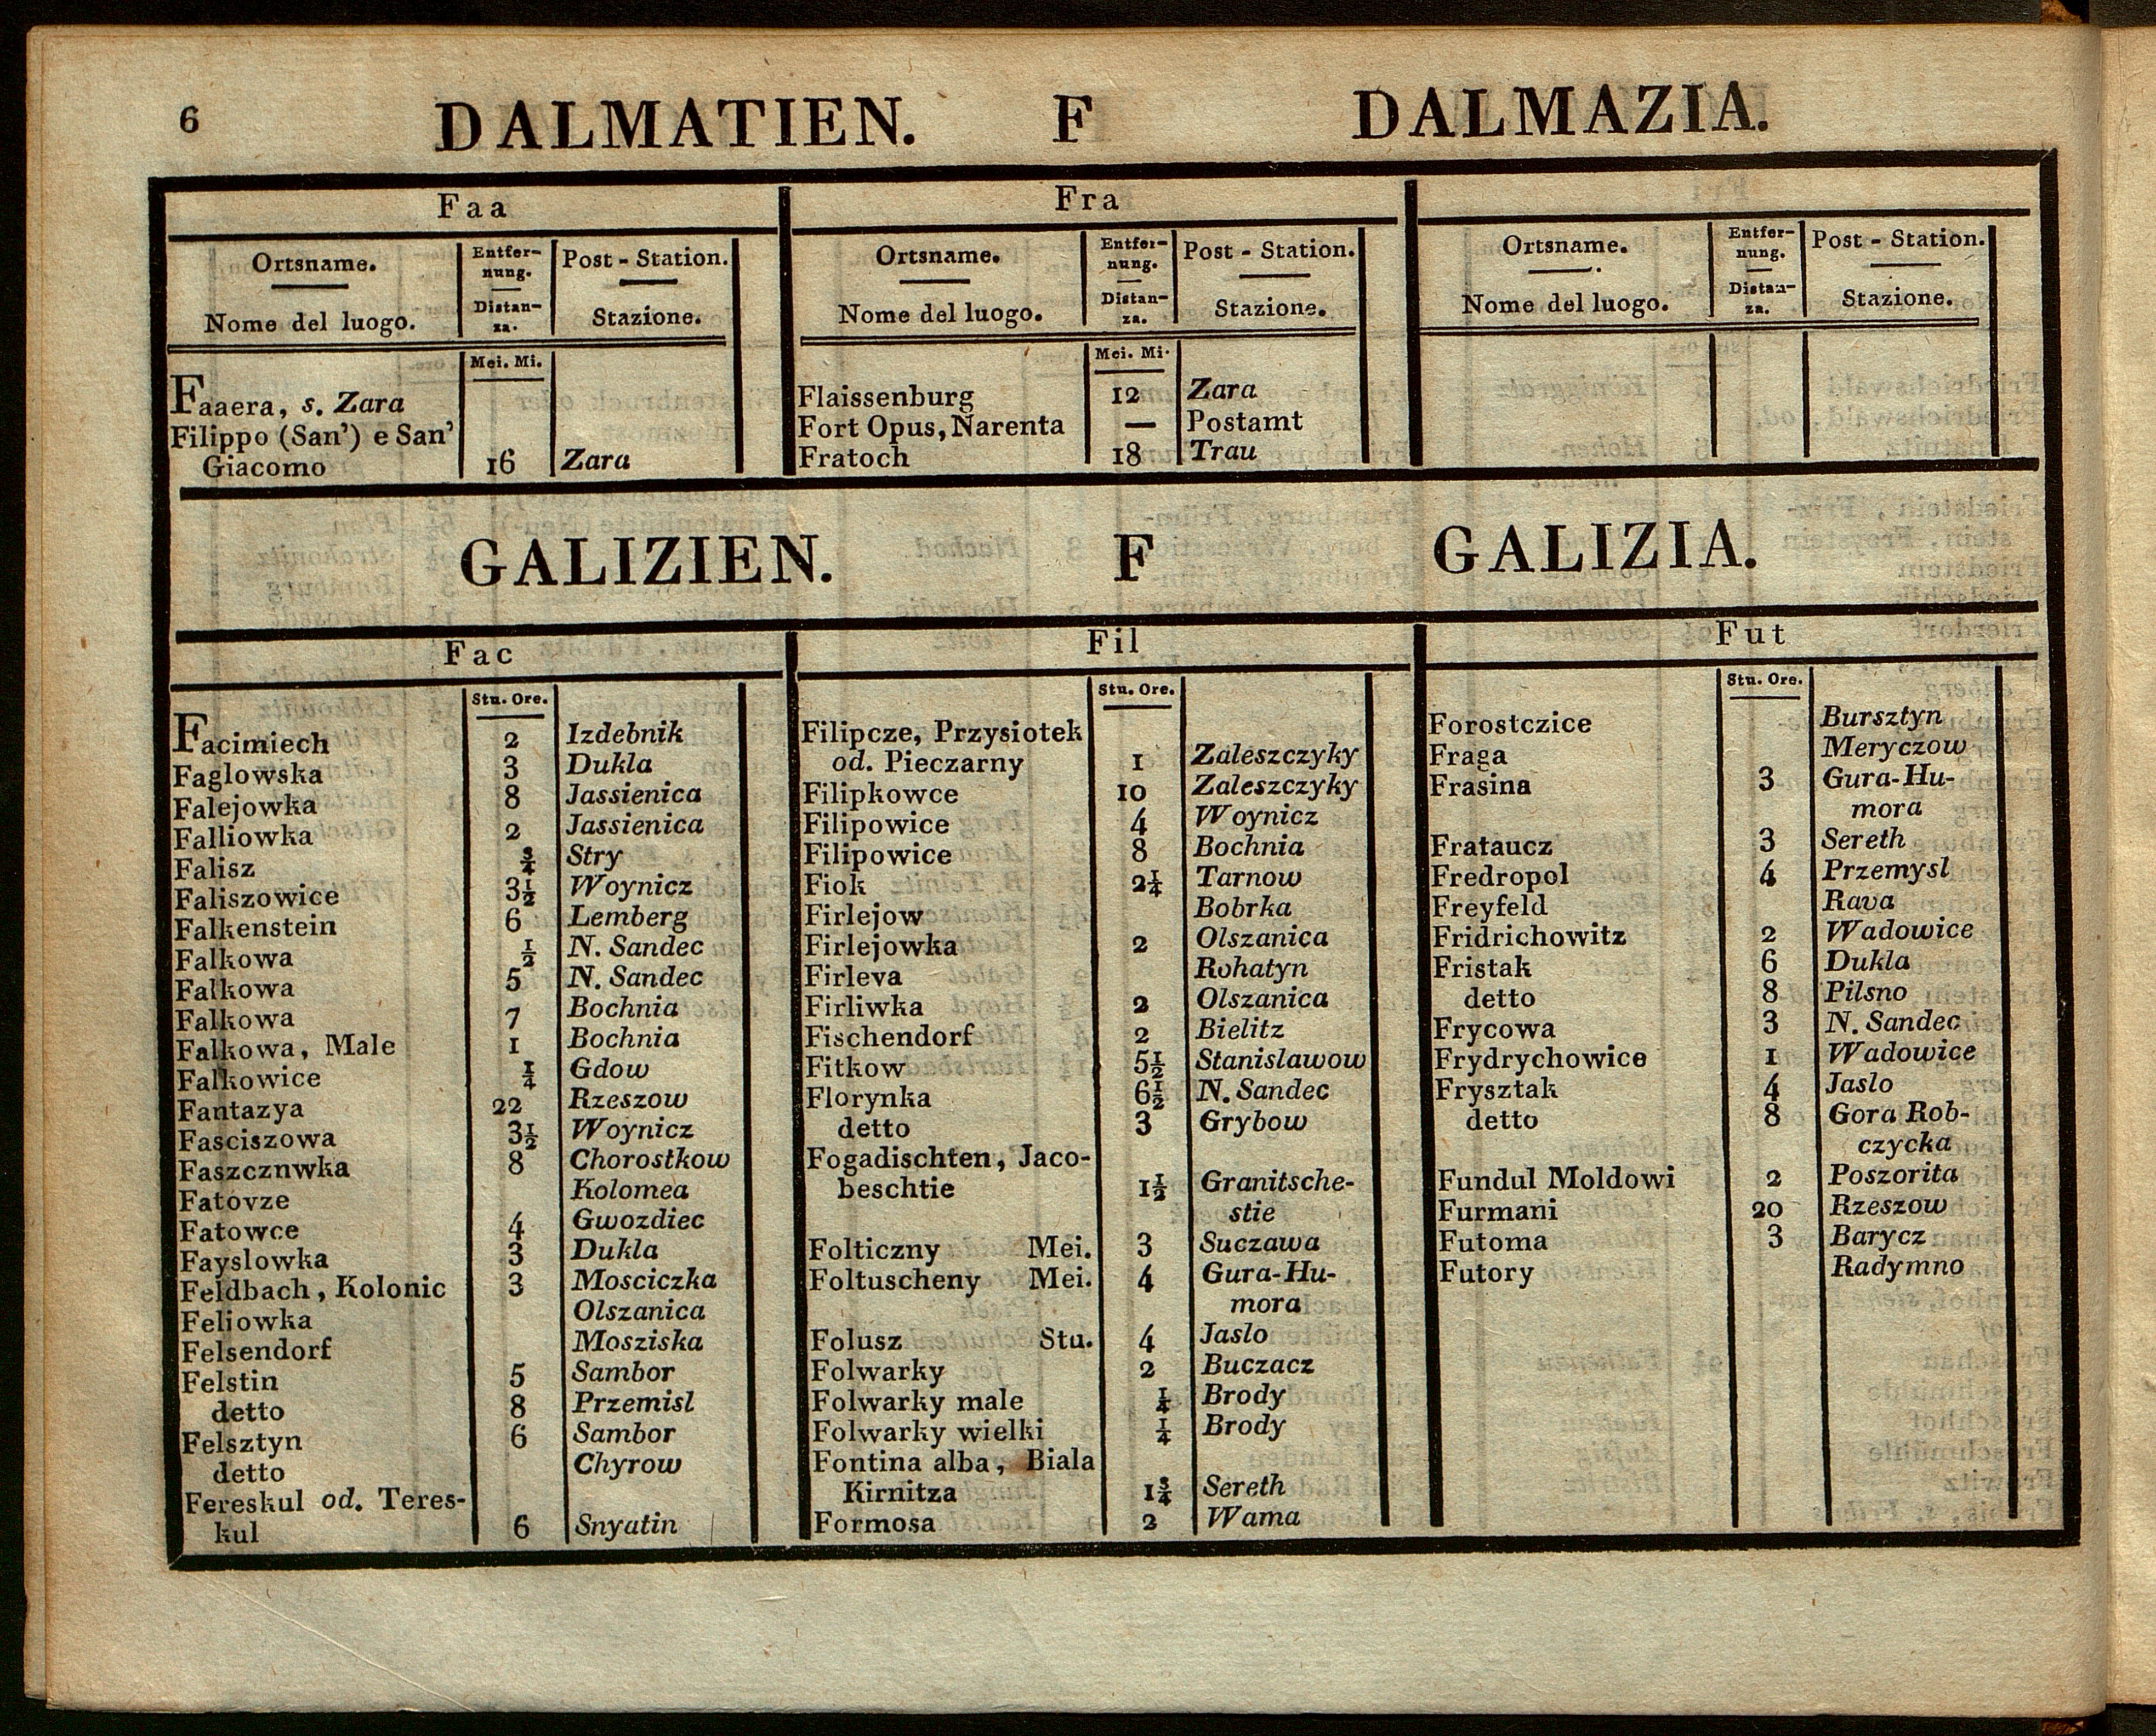 6 DALMATIEN. F DALMAZIA.
Faa
Ortsname. Entfer- Post - Station.
nung.
Nome del luogo. Distan- Stazione.
za.
Mei. Mi.
Faaera, s. Zara
Filippo (San') e San'
Giacomo 16 Zara
Fra
Ortsname. Entfer- Post - Station.
nung.
Nome del luogo. Distan- Stazione.
za.
Mei. Mi.
Flaissenburg 12 Zara
Fort Opus, Narenta — Postamt
Fratoch 18 Trau
Ortsname. Entfer- Post - Station.
nung.
Nome del luogo. Distan- Stazione.
za.
GALIZIEN. F GALIZIA.
Fac
Stu. Ore.
Facimiech 2 Izdebnik
Faglowska 3 Dukla
Falejowka 8 Jassienica
Falliowka 2 Jassienica
Falisz 3/4 Stry
Faliszowice 3 1/2 Woynicz
Falkenstein 6 Lemberg
Falkowa 1/2 N. Sandec
Falkowa 5 N. Sandec
Falkowa 7 Bochnia
Falkowa, Male 1 Bochnia
Falkowice 1/4 Gdow
Fantazya 22 Rzeszow
Fasciszowa 3 1/2 Woynicz
Faszcznwka 8 Chorostkow
Fatovze Kolomea
Fatowce 4 Gwozdiec
Fayslowka 3 Dukla
Feldbach, Kolonic 3 Mosciczka
Feliowka Olszanica
Felsendorf Mosziska
Felstin 5 Sambor
detto 8 Przemisl
Felsztyn 6 Sambor
detto Chyrow
Fereskul od. Teres-
kul 6 Snyatin
Fil
Stu. Ore.
Filipcze, Przysiotek
od. Pieczarny 1 Zaleszczyky
Filipkowce 10 Zaleszczyky
Filipowice 4 Woynicz
Filipowice 8 Bochnia
Fiok 2 1/4 Tarnow
Firlejow Bobrka
Firlejowka 2 Olszanica
Firleva Rohatyn
Firliwka 2 Olszanica
Fischendorf 2 Bielitz
Fitkow 5 1/2 Stanislawow
Florynka 6 1/2 N. Sandec
detto 3 Grybow
Fogadischten, Jaco-
beschtie 1 1/2 Granitsche-
stie
Folticzny Mei. 3 Suczawa
Foltuscheny Mei. 4 Gura-Hu-
mora
Folusz Stu. 4 Jaslo
Folwarky 2 Buczacz
Folwarky male 1/4 Brody
Folwarky wielki 1/4 Brody
Fontina alba, Biala
Kirnitza 1 3/4 Sereth
Formosa 2 Wama
Fut
Stu. Ore.
Forostczice Bursztyn
Fraga Meryczow
Frasina 3 Gura-Hu-
mora
Frataucz 3 Sereth
Fredropol 4 Przemysl
Freyfeld Rava
Fridrichowitz 2 Wadowice
Fristak 6 Dukla
detto 8 Pilsno
Frycowa 3 N. Sandec
Frydrychowice 1 Wadowice
Frysztak 4 Jaslo
detto 8 Gora Rob-
czycka
Fundul Moldowi 2 Poszorita
Furmani 20 Rzeszow
Futoma 3 Barycz
Futory Radymno